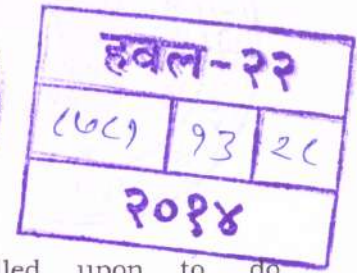 हवल-२२
८७८१ १३ २८
२०१४
led upon to do